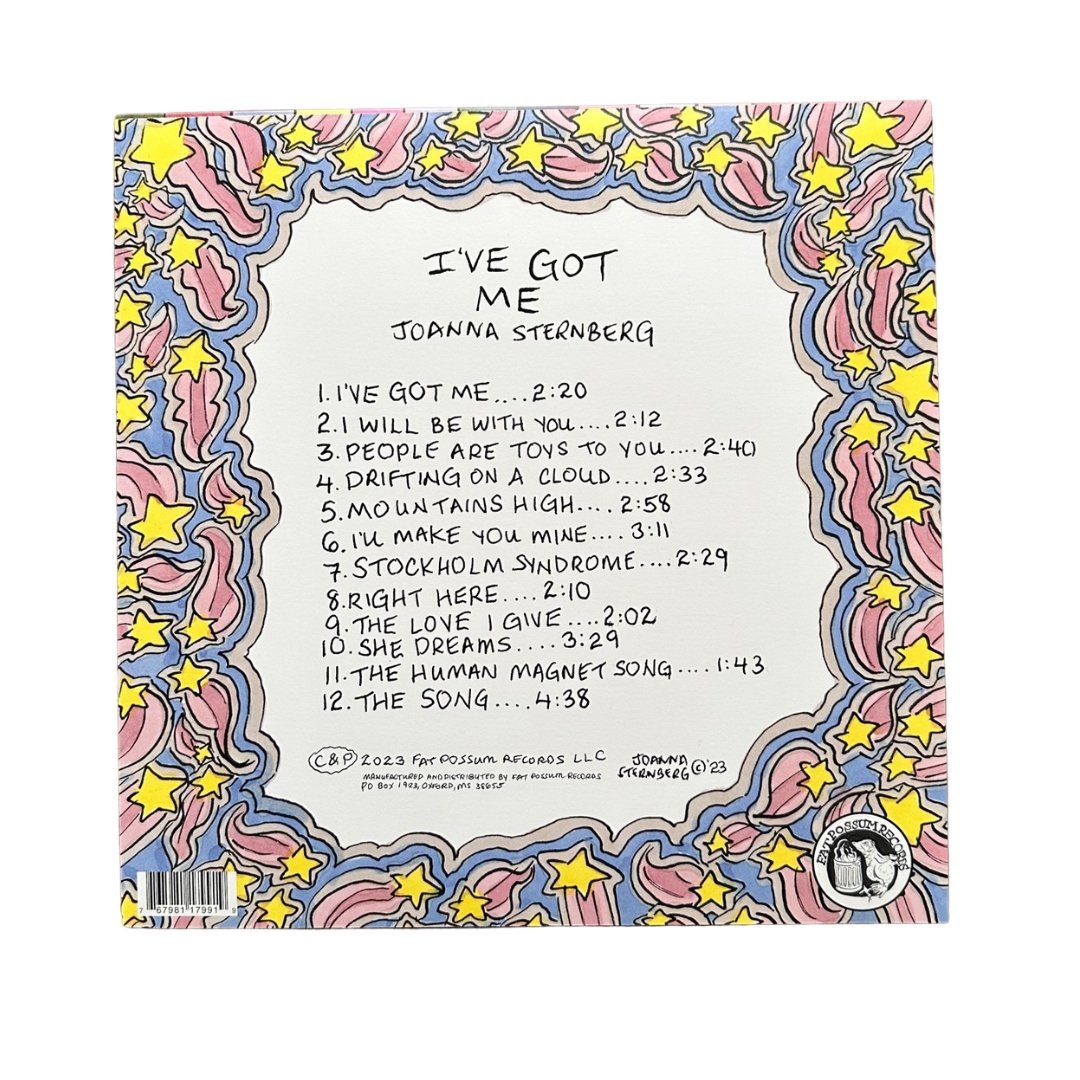 I'VE GOT
ME
JOANNA STERNBERG
1. I'VE GOT ME....2:20
2. I WILL BE WITH YOU....2:12
3. PEOPLE ARE TOYS TO YOU....2:40
4. DRIFTING ON A CLOUD....2:33
5. MOUNTAINS HIGH....2:58
6. I'LL MAKE YOU MINE....3:11
7. STOCKHOLM SYNDROME....2:29
8. RIGHT HERE....2:10
9. THE LOVE I GIVE....2:02
10. SHE DREAMS....3:29
11. THE HUMAN MAGNET SONG....1:43
12. THE SONG....4:38
C & P 2023 FAT POSSUM RECORDS LLC
MANUFACTURED AND DISTRIBUTED BY FAT POSSUM RECORDS
PO BOX 1923, OXFORD, MS 38655
JOANNA
STERNBERG © '23
FAT POSSUM RECORDS
7 67981 17991 9